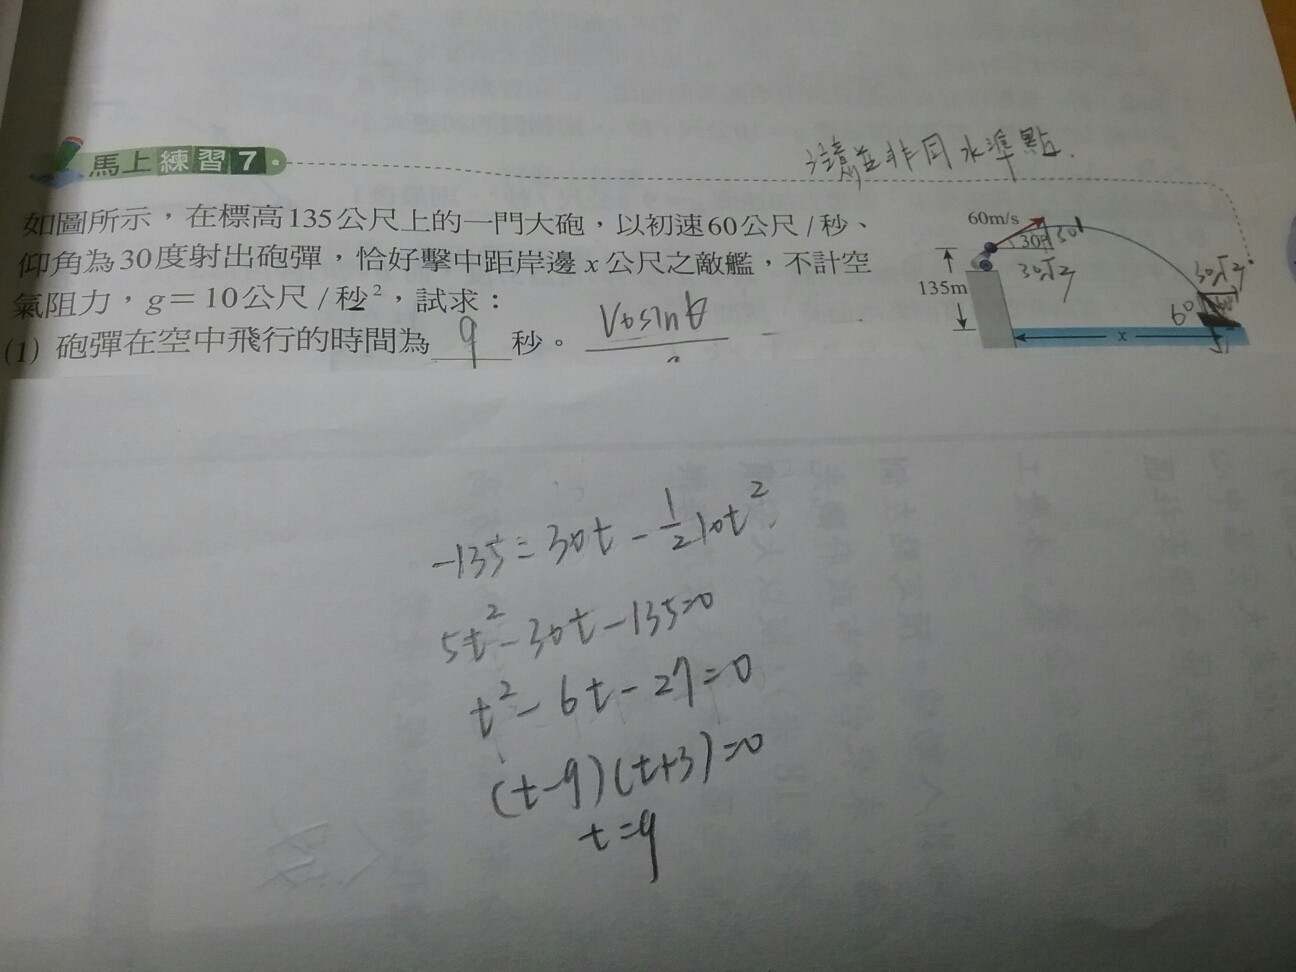 馬上練習7
讀並非同水準點.
如圖所示，在標高135公尺上的一門大砲，以初速60公尺/秒、
仰角為30度射出砲彈，恰好擊中距岸邊x公尺之敵艦，不計空
氣阻力，g＝10公尺/秒²，試求：
(1) 砲彈在空中飛行的時間為 9 秒。 V0sinθ
60m/s
30°
135m
x
-135=30t-1/2 10t²
5t²-30t-135=0
t²-6t-27=0
(t-9)(t+3)=0
t=9